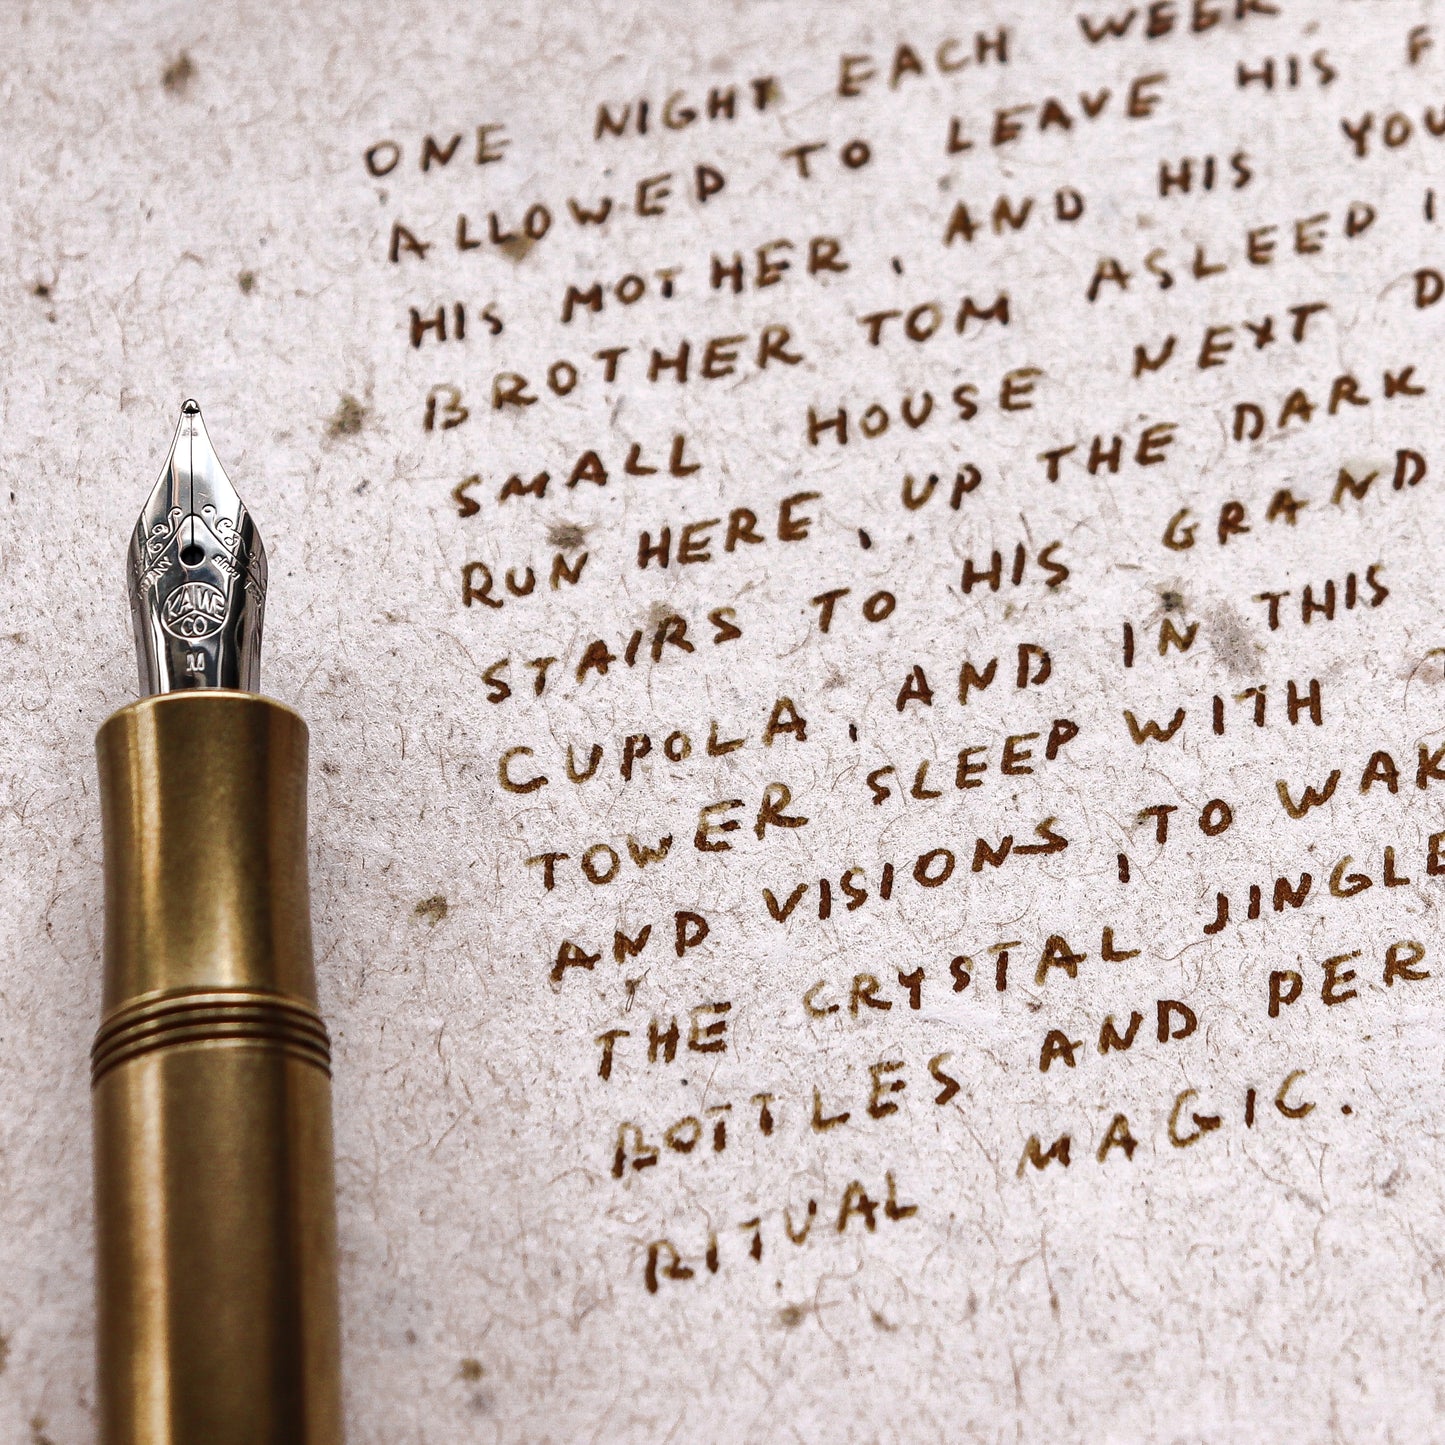 ONE NIGHT EACH WEEK
ALLOWED TO LEAVE HIS
HIS MOTHER, AND HIS
BROTHER TOM ASLEEP
SMALL HOUSE NEXT
RUN HERE, UP THE DARK
STAIRS TO HIS GRAND
CUPOLA, AND IN THIS
TOWER SLEEP WITH
AND VISIONS, TO
THE CRYSTAL JINGLE
BOTTLES AND
RITUAL MAGIC.
KAWE
CO
M